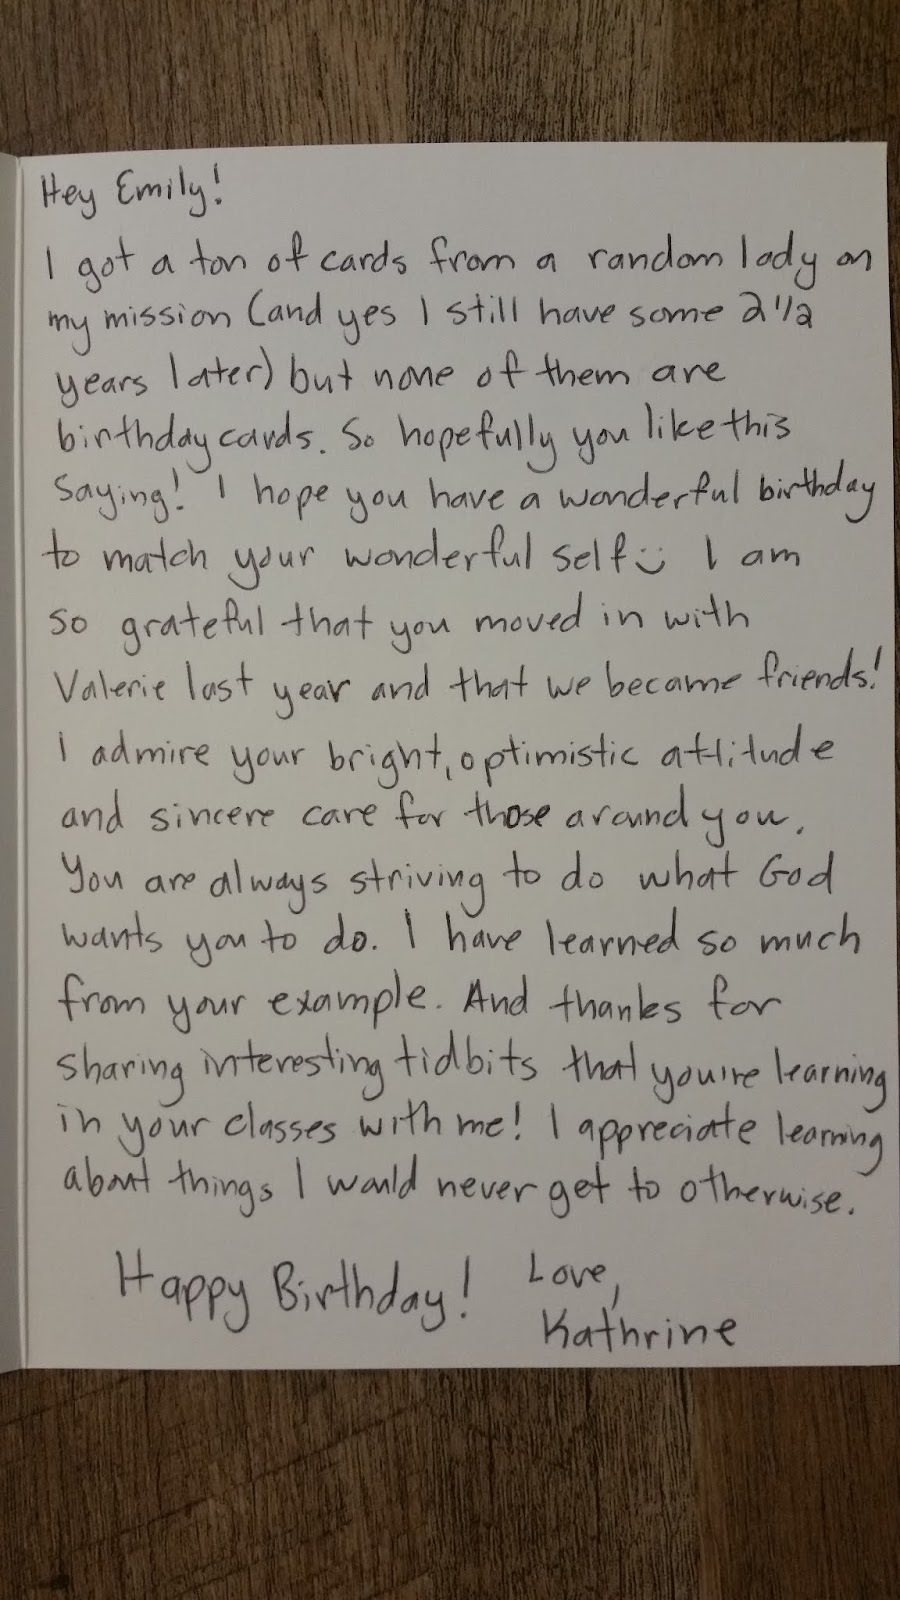 Hey Emily!
I got a ton of cards from a random lady on
my mission (and yes I still have some 2 1/2
years later) but none of them are
birthday cards. So hopefully you like this
saying! I hope you have a wonderful birthday
to match your wonderful self :) I am
so grateful that you moved in with
Valerie last year and that we became friends!
I admire your bright, optimistic attitude
and sincere care for those around you.
You are always striving to do what God
wants you to do. I have learned so much
from your example. And thanks for
sharing interesting tidbits that you're learning
in your classes with me! I appreciate learning
about things I would never get to otherwise.
Happy Birthday! Love,
Kathrine